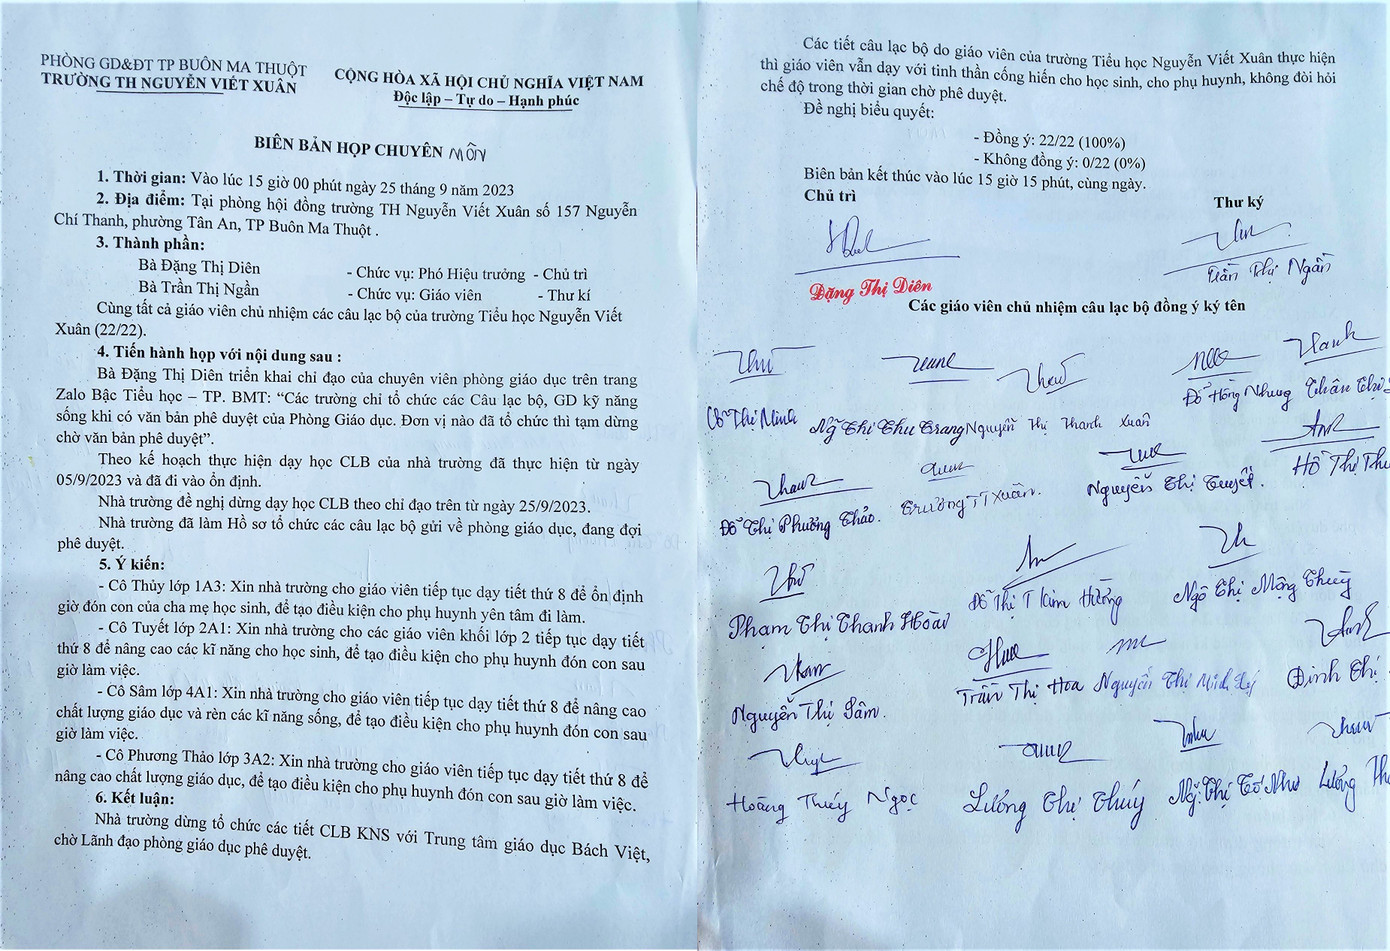 PHÒNG GD&ĐT TP BUÔN MA THUỘT
TRƯỜNG TH NGUYỄN VIẾT XUÂN
CỘNG HÒA XÃ HỘI CHỦ NGHĨA VIỆT NAM
Độc lập – Tự do – Hạnh phúc
BIÊN BẢN HỌP CHUYÊN MÔN
1. Thời gian: Vào lúc 15 giờ 00 phút ngày 25 tháng 9 năm 2023
2. Địa điểm: Tại phòng hội đồng trường TH Nguyễn Viết Xuân số 157 Nguyễn
Chí Thanh, phường Tân An, TP Buôn Ma Thuột .
3. Thành phần:
Bà Đặng Thị Diên - Chức vụ: Phó Hiệu trưởng - Chủ trì
Bà Trần Thị Ngần - Chức vụ: Giáo viên - Thư kí
Cùng tất cả giáo viên chủ nhiệm các câu lạc bộ của trường Tiểu học Nguyễn Viết
Xuân (22/22).
4. Tiến hành họp với nội dung sau :
Bà Đặng Thị Diên triển khai chỉ đạo của chuyên viên phòng giáo dục trên trang
Zalo Bậc Tiểu học – TP. BMT: “Các trường chỉ tổ chức các Câu lạc bộ, GD kỹ năng
sống khi có văn bản phê duyệt của Phòng Giáo dục. Đơn vị nào đã tổ chức thì tạm dừng
chờ văn bản phê duyệt”.
Theo kế hoạch thực hiện dạy học CLB của nhà trường đã thực hiện từ ngày
05/9/2023 và đã đi vào ổn định.
Nhà trường đề nghị dừng dạy học CLB theo chỉ đạo trên từ ngày 25/9/2023.
Nhà trường đã làm Hồ sơ tổ chức các câu lạc bộ gửi về phòng giáo dục, đang đợi
phê duyệt.
5. Ý kiến:
- Cô Thủy lớp 1A3: Xin nhà trường cho giáo viên tiếp tục dạy tiết thứ 8 để ổn định
giờ đón con của cha mẹ học sinh, để tạo điều kiện cho phụ huynh yên tâm đi làm.
- Cô Tuyết lớp 2A1: Xin nhà trường cho các giáo viên khối lớp 2 tiếp tục dạy tiết
thứ 8 để nâng cao các kĩ năng cho học sinh, để tạo điều kiện cho phụ huynh đón con sau
giờ làm việc.
- Cô Sâm lớp 4A1: Xin nhà trường cho giáo viên tiếp tục dạy tiết thứ 8 để nâng cao
chất lượng giáo dục và rèn các kĩ năng sống, để tạo điều kiện cho phụ huynh đón con sau
giờ làm việc.
- Cô Phương Thảo lớp 3A2: Xin nhà trường cho giáo viên tiếp tục dạy tiết thứ 8 để
nâng cao chất lượng giáo dục, để tạo điều kiện cho phụ huynh đón con sau giờ làm việc.
6. Kết luận:
Nhà trường dừng tổ chức các tiết CLB KNS với Trung tâm giáo dục Bách Việt,
chờ Lãnh đạo phòng giáo dục phê duyệt.
Các tiết câu lạc bộ do giáo viên của trường Tiểu học Nguyễn Viết Xuân thực hiện
thì giáo viên vẫn dạy với tinh thần cống hiến cho học sinh, cho phụ huynh, không đòi hỏi
chế độ trong thời gian chờ phê duyệt.
Đề nghị biểu quyết:
- Đồng ý: 22/22 (100%)
- Không đồng ý: 0/22 (0%)
Biên bản kết thúc vào lúc 15 giờ 15 phút, cùng ngày.
Chủ trì Thư ký
Trần Thị Ngần
Đặng Thị Diên
Các giáo viên chủ nhiệm câu lạc bộ đồng ý ký tên
Thị Minh Ng Thị Thu Trang Nguyễn Thị Thanh Xuân Đỗ Hồng Nhung Thị
Đỗ Thị Phương Thảo. Trương TT Xuân. Nguyễn Thị Tuyết. Hồ Thị
Phạm Thị Thanh Hoài Đỗ Thị Kim Hương Ngô Thị Mộng Thuỳ
Nguyễn Thị Sâm. Trần Thị Hoa Nguyễn Thị Minh Lý Đinh Thị
Hoàng Thuý Ngọc Lương Thị Thuý Ng. Thị Tố Như Lương